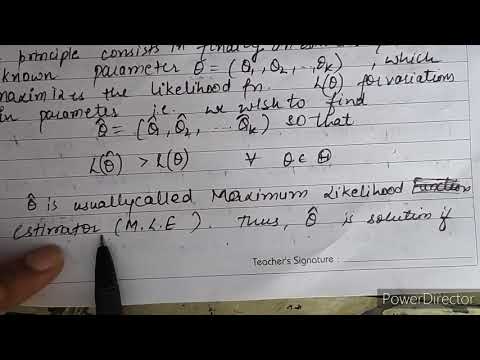 principle consists in finding an
known parameter θ = (θ₁, θ₂, ..., θₖ) , which
maximizes the likelihood fn. L(θ) for variations
in parameter i.e. we wish to find
θ̂ = (θ̂₁, θ̂₂, ... θ̂ₖ) so that
L(θ̂) > L(θ) ∀ θ ∈ Θ
θ̂ is usually called Maximum Likelihood Function
estimator (M.L.E). Thus, θ̂ is solution if
Teacher's Signature :
PowerDirector